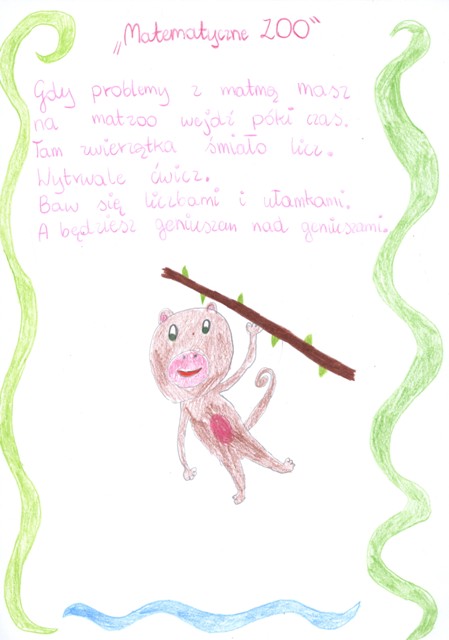 „Matematyczne ZOO"
Gdy problemy z matmą masz
na matzoo wejdź póki czas.
Tam zwierzątka śmiało licz.
Wytrwale ćwicz.
Baw się liczbami i ułamkami.
A będziesz geniuszem nad geniuszami.